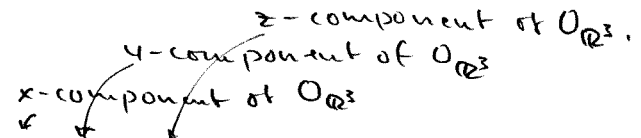 z-component of O_ℝ³.
y-component of O_ℝ³
x-component of O_ℝ³